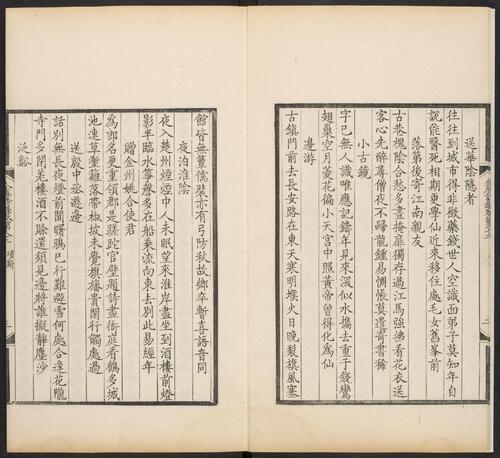 送華陰隱者
往往到城市得非徵藥錢世人空識面弟子莫知年自
說能醫死相期更學仙近來移住處毛女舊峯前
落第後寄江南親友
古巷槐陰合愁多晝掩扉獨存過江馬強拂看花衣送
客心先醉尋僧夜不歸龍鍾易惆悵莫遣寄書稀
小古鏡
字已無人識唯應記鑄年見來深似水攜去重于錢鸞
翅巢空月菱花徧小天宮中照黃帝曾得化為仙
邊游
古鎮門前去長安路在東天寒明堠火日晚裂旗風塞
館皆無簟儒裝亦有弓防秋故鄉卒暫喜語音同
夜泊淮陰
夜入楚州煙煙中人未眠望來淮岸盡坐到酒樓前燈
影半臨水箏聲多在船乘流向東去別此易經年
贈金州姚合使君
為郎名更重領郡是蹉跎官壁題詩盡衙庭看鶴多城
池連草塹籬落帶椒坡未覺旗旛貴閑行觸處過
送殷中丞遊邊
話別無長夜燈前聞曙鴉已行難避雪何處合逢花隴
寺門多閉羌樓酒不賒還須見邊將誰擬靜塵沙
泛谿
項斯